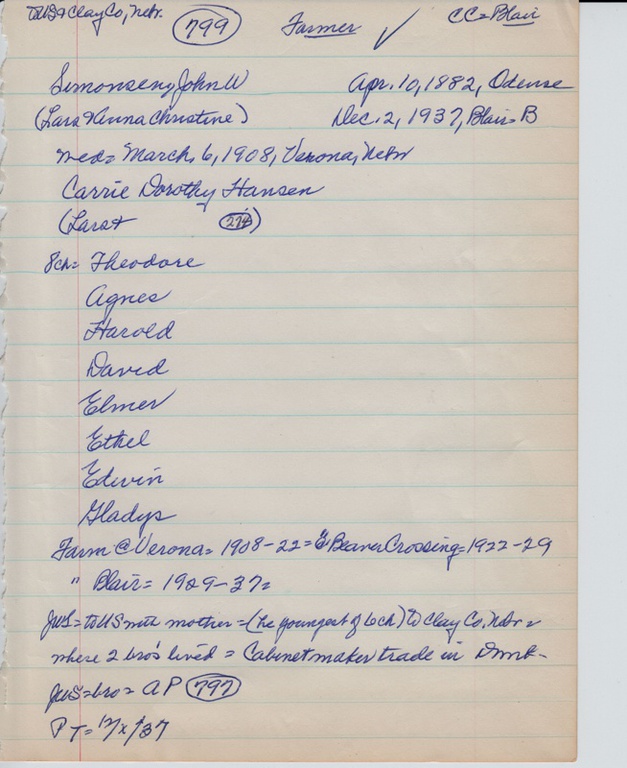 to US & Clay Co, Nebr. 799 Farmer ✓ CC = Blair
Simonsen, John W Apr. 10, 1882, Odense
(Lars & Anna Christine) Dec. 2, 1937, Blair = B
med = March, 6, 1908, Verona, Nebr
Carrie Dorothy Hansen
(Lars + 274)
8 ch = Theodore
Agnes
Harold
David
Elmer
Ethel
Edwin
Gladys
Farm @ Verona = 1908-22 = @ Beaver Crossing = 1922-29
" Blair = 1929-37 =
JWS = to US with mother = (he youngest of 6 ch) to Clay Co, Nebr =
where 2 bro's lived = Cabinet maker trade in Dmk -
JWS = bro = A P 797
P T = 12/ /37